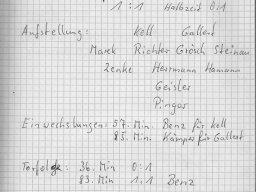 1 : 1 Halbzeit 0:1
Aufstellung: Köll Gallert
Marek Richter Grösch Steinau
Zenke Herrmann Hamann
Geisler
Pinger
Einwechslungen: 57. Min. Benz für Köll
85. Min. Kämpfer für Gallert
Torfolge: 36. Min 0:1
83. Min 1:1 Benz